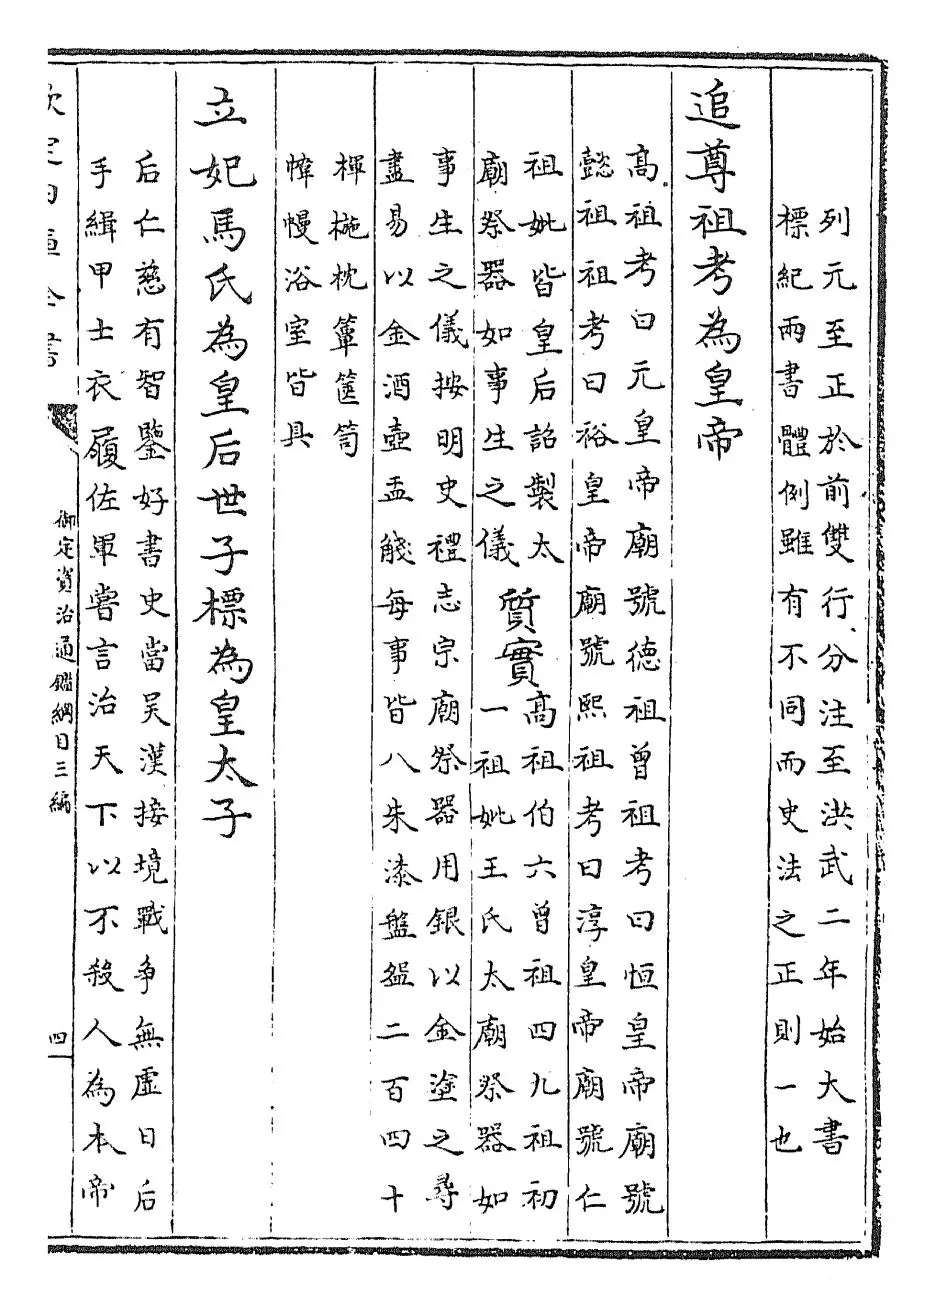 列元至正於前雙行分注至洪武二年始大書
標紀兩書體例雖有不同而史法之正則一也
追尊祖考為皇帝
髙祖考曰元皇帝廟號德祖曾祖考曰恒皇帝廟號
懿祖祖考曰裕皇帝廟號熙祖考曰淳皇帝廟號仁
祖妣皆皇后詔製太
廟祭器如事生之儀
質實
髙祖伯六曾祖四九祖初
一祖妣王氏太廟祭器如
事生之儀按明史禮志宗廟祭器用銀以金塗之尋
盡易以金酒壺盂每事皆八朱漆盤盌二百四十
楎椸枕簟篋笥
幃幔浴室皆具
立妃馬氏為皇后世子標為皇太子
后仁慈有智鑒好書史當吳漢接境戰爭無虛日后
手緝甲士衣履佐軍嘗言治天下以不殺人為本帝
欽定四庫全書
御定資治通鑑綱目三編
四